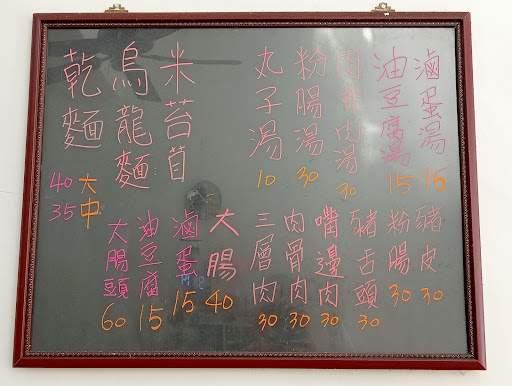 滷蛋湯 15
油豆腐湯 15
肉骨肉湯 30
粉腸湯 30
丸子湯 10
米苔苜
烏龍麵
乾麵
大 40
中 35
豬皮 30
粉腸 30
豬舌頭 30
嘴邊肉 30
肉骨肉 30
三層肉 30
大腸 40
滷蛋 15
油豆腐 15
大腸頭 60